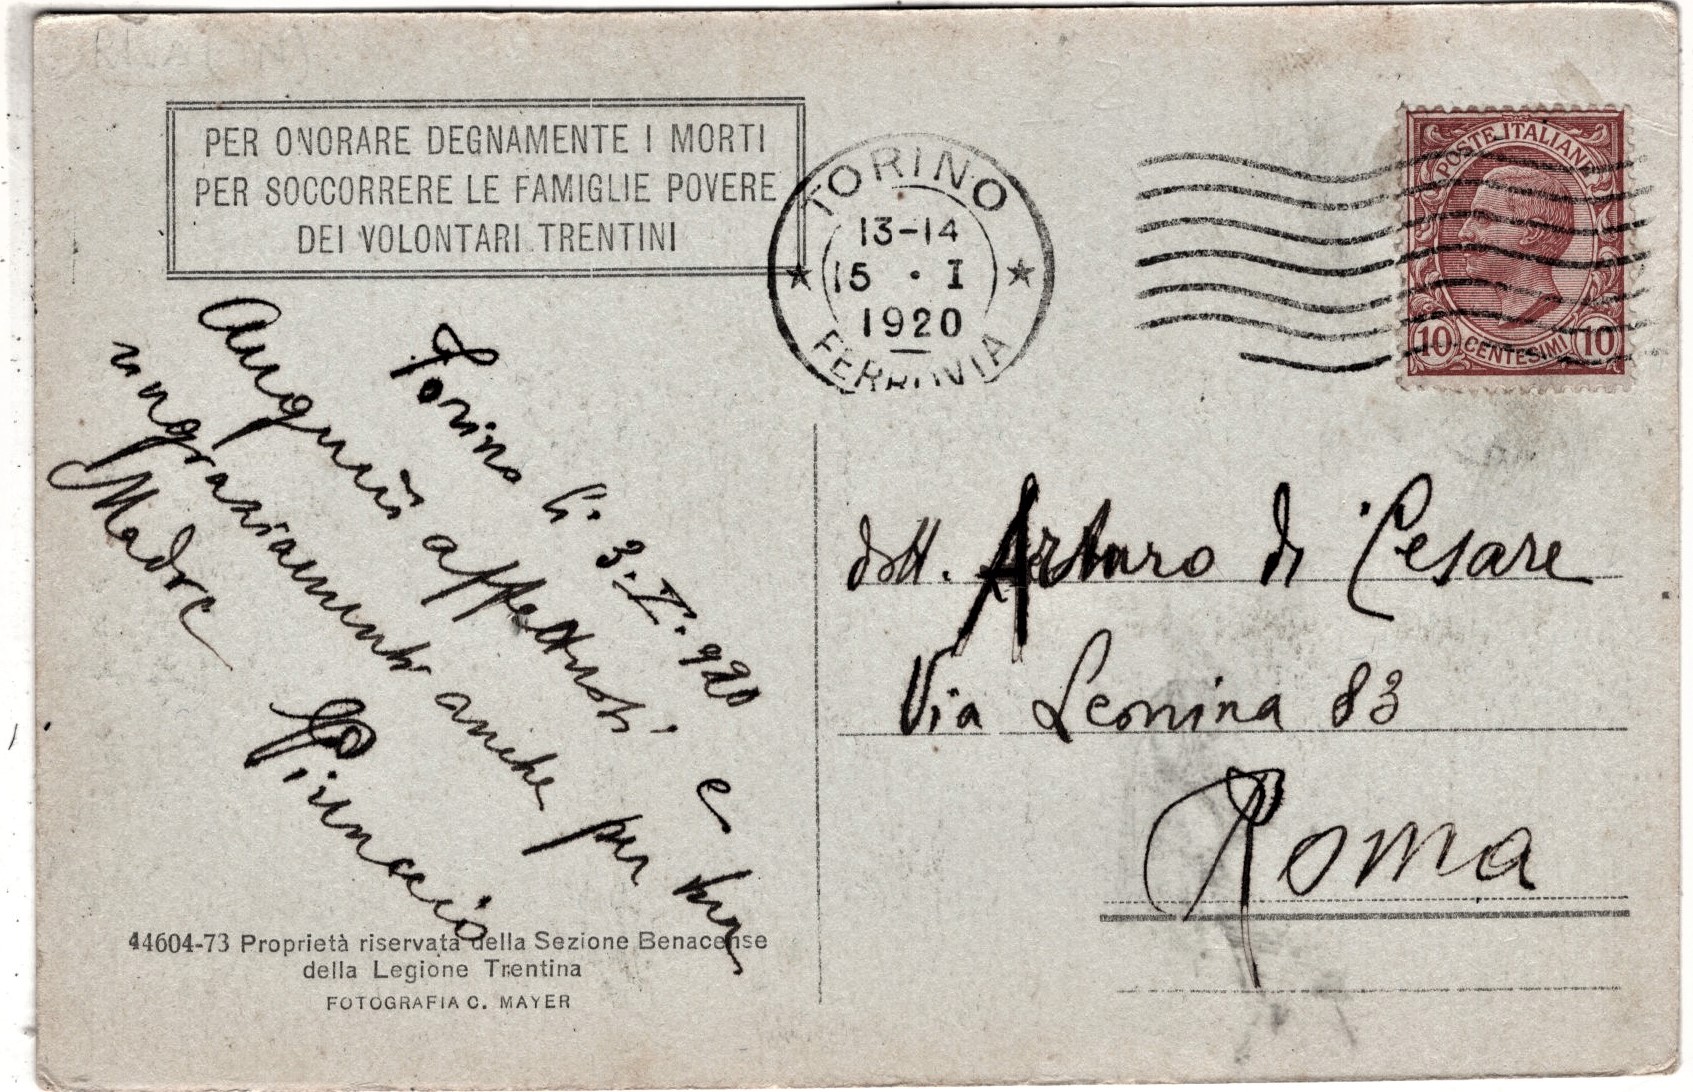 PER ONORARE DEGNAMENTE I MORTI
PER SOCCORRERE LE FAMIGLIE POVERE
DEI VOLONTARI TRENTINI
TORINO
13-14
15 · I
1920
FERROVIA
POSTE ITALIANE
10 CENTESIMI 10
Torino li. 3.I.920
Auguri affettuosi e
ringraziamenti anche per tua
Madre
dott. Arturo di Cesare
Via Leonina 83
Roma
44604-73 Proprietà riservata della Sezione Benacense
della Legione Trentina
FOTOGRAFIA C. MAYER